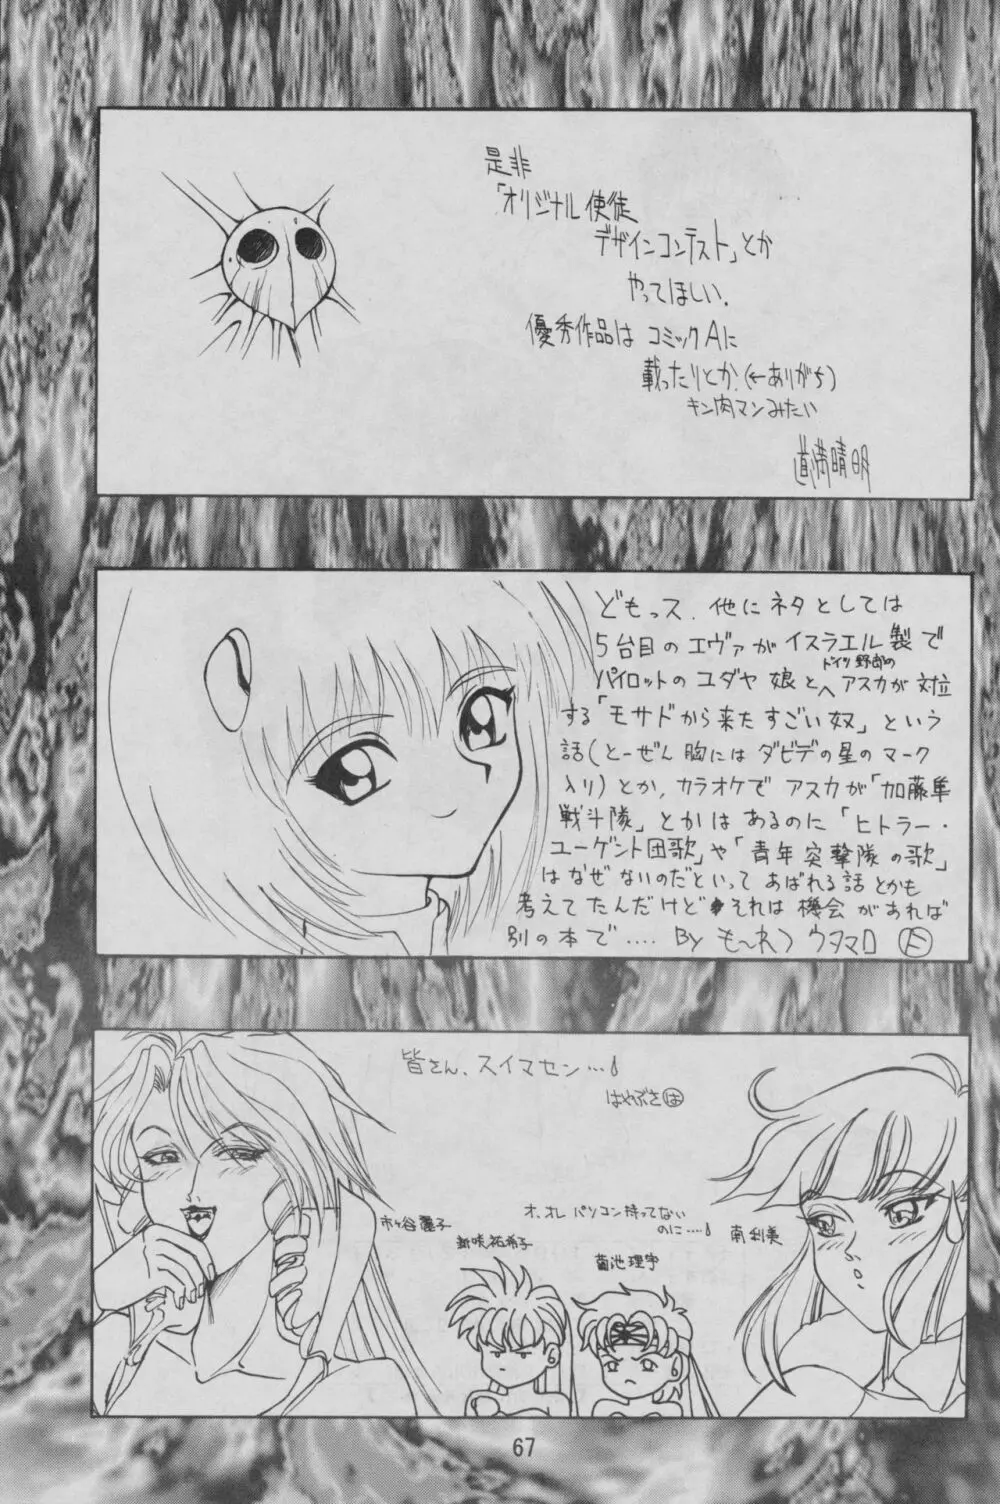 是非
「オリジナル使徒
デザインコンテスト」とか
やってほしい.
優秀作品は コミックAに
載ったりとか.(←ありがち)
キン肉マンみたい
道満晴明
どもっス. 他にネタとしては
5台目のエヴァがイスラエル製で
ドイツ野郎の
パイロットのユダヤ娘と、アスカが対位
する「モサドから来たすごい奴」という
話(とーぜん胸にはダビデの星のマーク
入り)とか, カラオケでアスカが「加藤隼
戦斗隊」とかはあるのに「ヒトラー・
ユーゲント団歌」や「青年突撃隊の歌」
はなぜないのだといってあばれる話とかも
考えてたんだけど それは機会があれば
別の本で‥‥ By も〜れつウタマロ
皆さん、スイマセン…
はやぶさは
市ヶ谷麗子
新咲祐希子
オ、オレ パソコン持ってない
のに…
菊池理宇
南利美
67